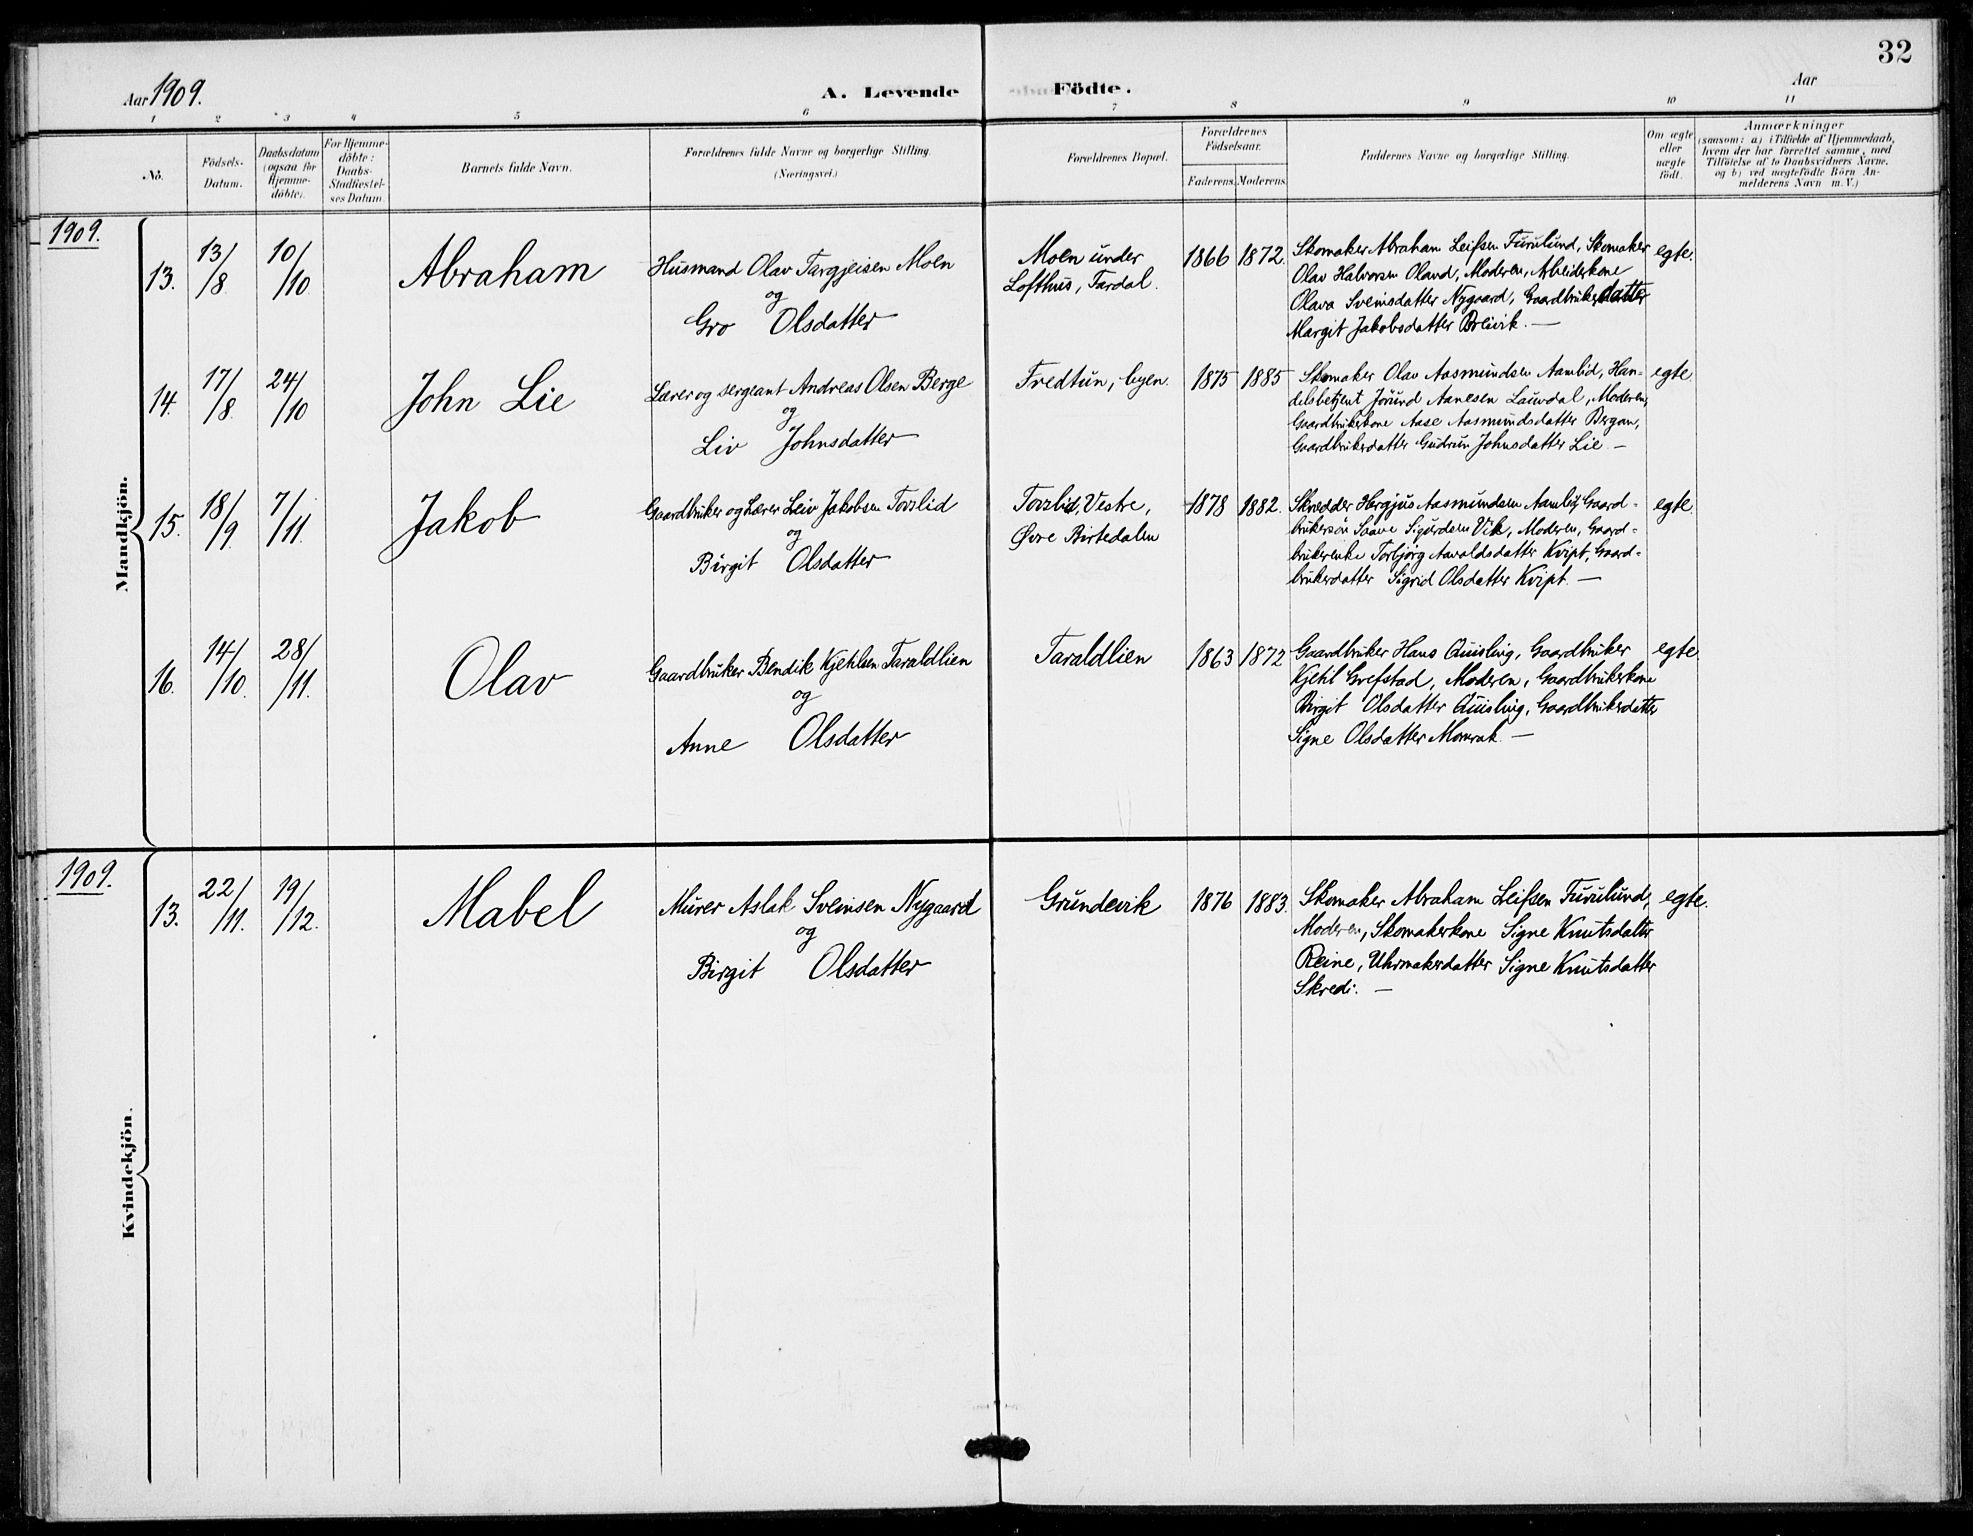 32
Aar 1909.
A. Levende Födte.
Aar
1 2 3 4 5 6 7 8 9 10 11
No.
Födsels-
Datum.
Daabsdatum
(ogsaa for
Hjemme-
döbte).
For Hjemme-
döbte:
Daabs-
Stadfæstel-
ses Datum.
Barnets fulde Navn.
Forældrenes fulde Navne og borgerlige Stilling.
(Næringsvei.)
Forældrenes Bopæl.
Forældrenes
Födselsaar.
Faderens. Moderens.
Faddernes Navne og borgerlige Stilling.
Om ægte
eller
uægte
födt.
Anmærkninger
(saasom: a) i Tilfælde af Hjemmedaab,
hvem der har forrettet samme, med
Tilföielse af to Daabsvidners Navne,
og b) ved uægtefödte Börn An-
melderens Navn m. V.)
Mandkjön.
1909.
13. 13/8 10/10 Abraham
Husmand Olav Targjeisen Moen
og
Gro Olsdatter
Moen under
Lofthus, Tardal.
1866 1872.
Skomaker Abraham Leifsen Furulund, Skomaker
Olav Halvorsen Oland, Moderen, Arbeiderkone
Olava Sveinsdatter Nygaard, Gaardbrukerdatter
Margit Jakobsdatter Breivik. —
egte.
14. 17/8. 24/10 John Lie
Lærer og sergeant Andreas Olsen Berge
og
Liv Johnsdatter
Fredtun, byen.
1875 1885
Skomaker Olav Aasmundsen Aamlid, Han-
delsbetjent Jörund Aanesen Lauvdal, Moderen,
Gaardbrukerkone Aase Aasmundsdatter Bergan,
Gaardbrukerdatter Gudrun Johnsdatter Lie —
egte
15. 18/9. 7/11. Jakob
Gaardbruker og Lærer Leiv Jakobsen Torslid
og
Birgit Olsdatter
Torslid Vestre,
Øvre Birtedalen
1878 1882.
Skredder Hergjus Aasmundsen Aamlid, Gaard-
brukersön Saave Sigurdsen Vik, Moderen, Gaard-
brukerenke Torbjörg Aavaldsdatter Kvipt, Gaard-
brukerdatter Sigrid Olsdatter Kvipt. —
egte.
16. 14/10. 28/11. Olav
Gaardbruker Bendik Kjetilsen Taraldlien
og
Anne Olsdatter
Taraldlien
1863 1872
Gaardbruker Hans Quisling, Gaardbruker
Kjetil Grefstad, Moderen, Gaardbrukerkone
Birgit Olsdatter Quisling, Gaardbrukerdatter
Signe Olsdatter Momrak. —
egte
Kvindekjön.
1909.
13. 22/11. 19/12. Mabel
Murer Aslak Sveinsen Nygaard
og
Birgit Olsdatter
Grundevik
1876 1883.
Skomaker Abraham Leifsen Furulund,
Moderen, Skomakerkone Signe Knutsdatter
Reine, Uhrmakerdatter Signe Knutsdatter
Skredi. —
egte.